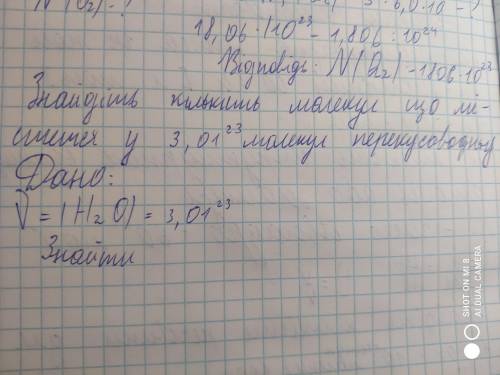 N(O₂)-?
18,06 · 10²³ - 1,806 · 10²⁴
Відповідь: N(O₂) - 1806·10²³
Знайдіть кількить молекул що мі-
стется у 3,01²³ молекул
Дано:
V = (H₂O) = 3,01²³
Знайти
SHOT ON MI 8
AI DUAL CAMERA